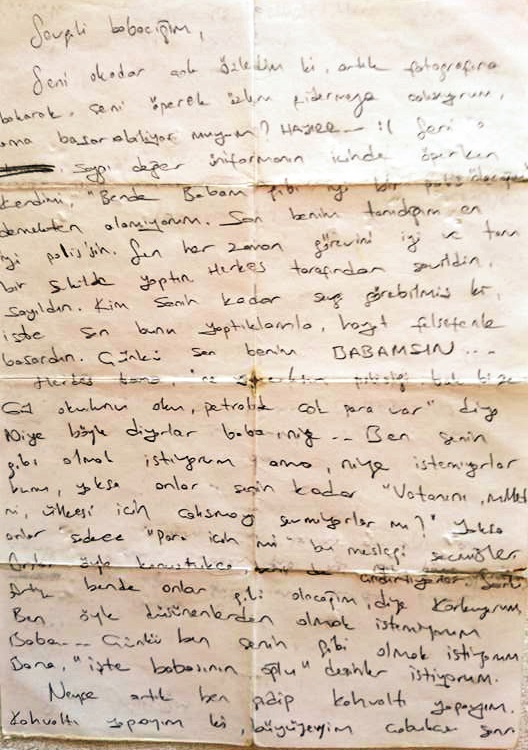 Sevgili babacığım,
Seni okadar çok özledim ki, artık fotoğrafına
bakarak, seni öperek özlem gidermeye çalışıyorum,
ama başarabiliyor muyum? HAYIR... :( Seni o
saygı değer üniformanın içinde öperken
kendimi, "Bende Babam gibi iyi bir polis olacağım
demekten alamıyorum. Sen benim tanıdığım en
iyi polis'sin. Sen her zaman görevini iyi ve tam
bir şekilde yaptın. Herkes tarafından sevildin,
sayıldın. Kim senin kadar saygı görebilmiş ki,
işte sen bunu yaptıklarınla, hayat felsefenle
başardın. Çünkü sen benim BABAMSIN ...
Herkes bana, bak bize
Git okulunu oku, petrolde çok para var" diye
Niye böyle diyorlar baba, niye ... Ben senin
gibi olmak istiyorum ama, niye istemiyorlar
bunu, yoksa onlar senin kadar "Vatanını, milleti
ni, ülkesi için çalışmayı sevmiyorlar mı?" Yoksa
onlar sadece "Para için mi" bu mesleği seçmişler
Onlar öyle konuştukça,
Artık bende onlar gibi olacağım, diye korkuyorum
Ben öyle düşünenlerden olmak istemiyorum
Baba... Çünkü ben senin gibi olmak istiyorum
Bana, "işte babasının oğlu" desinler istiyorum.
Neyse artık ben gidip kahvaltı yapayım.
Kahvaltı yapayım ki, büyüyeyim çabucak